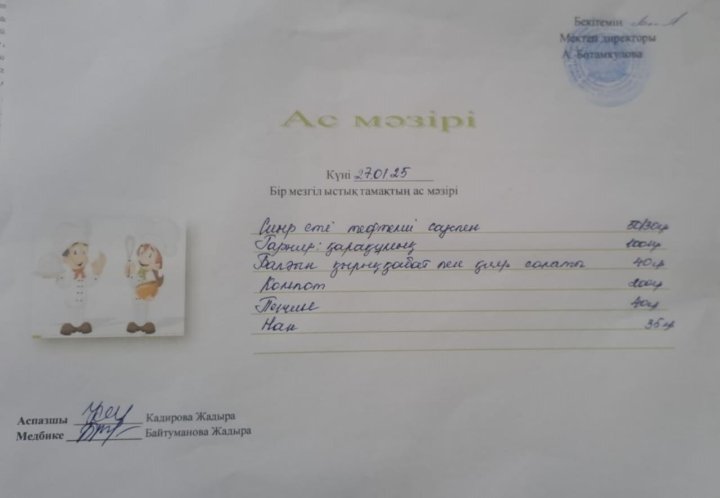 Бекітемін
Мектеп директоры
А. Ботамкулова
Ас мәзірі
Күні 27.01.25
Бір мезгіл ыстық тамақтың ас мәзірі
Сиыр еті тефтелиі соуспен 50/30гр
Гарнир: қарақұмық 100гр
Балғын қырыққабат пен қияр салаты 40гр
Компот 200гр
Печенье 40гр
Нан 35гр
Аспазшы Кадирова Жадыра
Медбике Байтуманова Жадыра